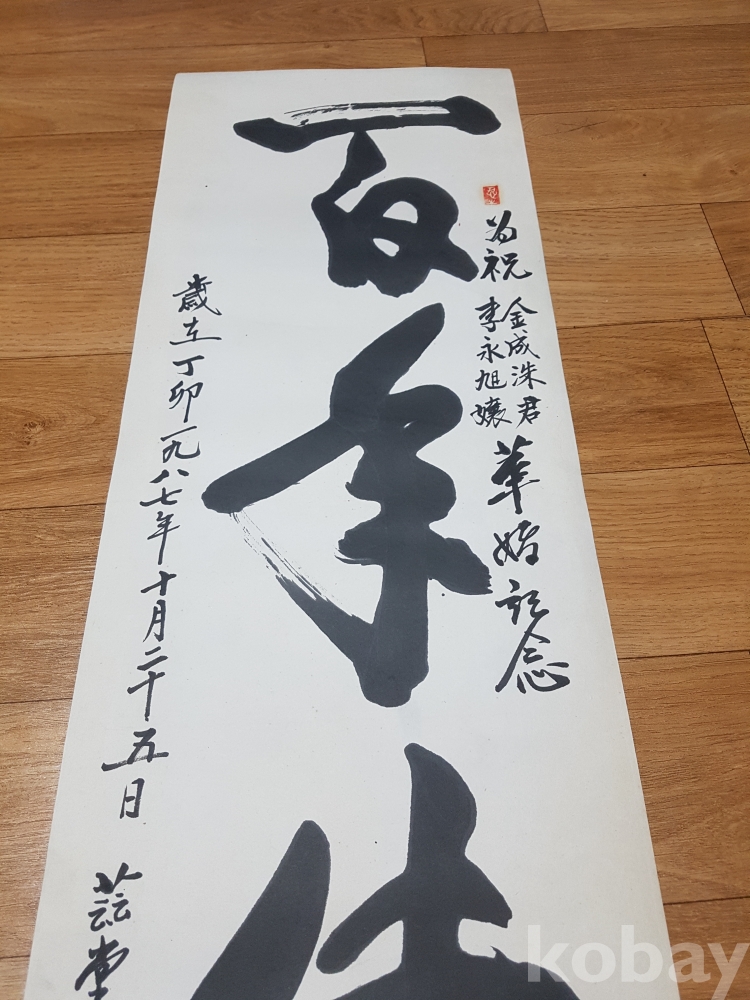 为祝
金成洙君
李永旭孃
華婚記念
百年
歲在丁卯一九八七年十月二十五日 堂
kobay